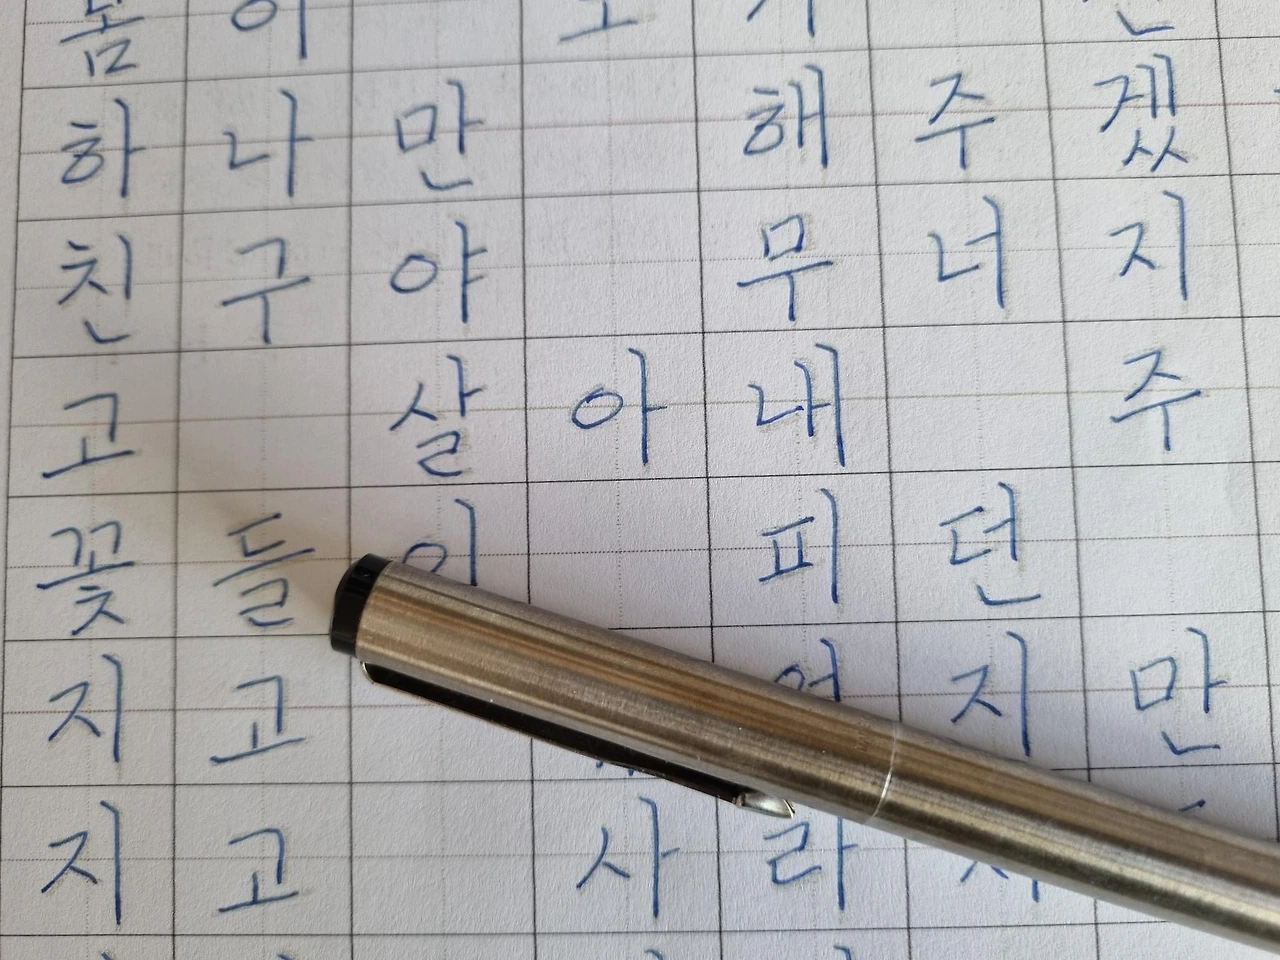 하나만 해주겠
친구야 무너지
고 살아내 주
꽃들이 피던
지고 지만
지고 사라